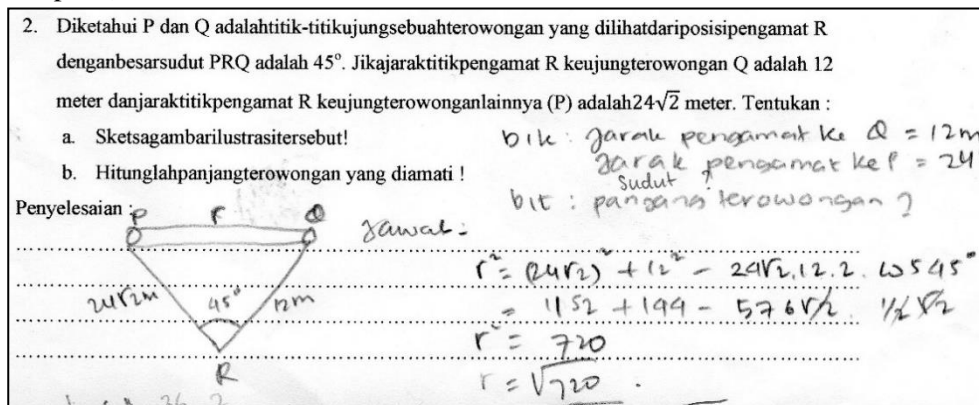 2. Diketahui P dan Q adalahtitik-titikujungsebuahterowongan yang dilihatdariposisipengamat R
denganbesarsudut PRQ adalah 45°. Jikajaraktitikpengamat R keujungterowongan Q adalah 12
meter danjaraktitikpengamat R keujungterowonganlainnya (P) adalah24√2 meter. Tentukan :
a. Sketsagambarilustrasitersebut!
b. Hitunglahpanjangterowongan yang diamati !
Dik : Jarak pengamat ke Q = 12m
Jarak pengamat ke P = 24
Sudut
Dit : panjang terowongan ?
Penyelesaian :
P r Q
Jawab :
24√2m 45° 12m
R
r² = (24√2)² + 12² - 24√2.12.2. cos 45°
= 1152 + 144 - 576√2. 1/2 √2
r² = 720
r = √720 .